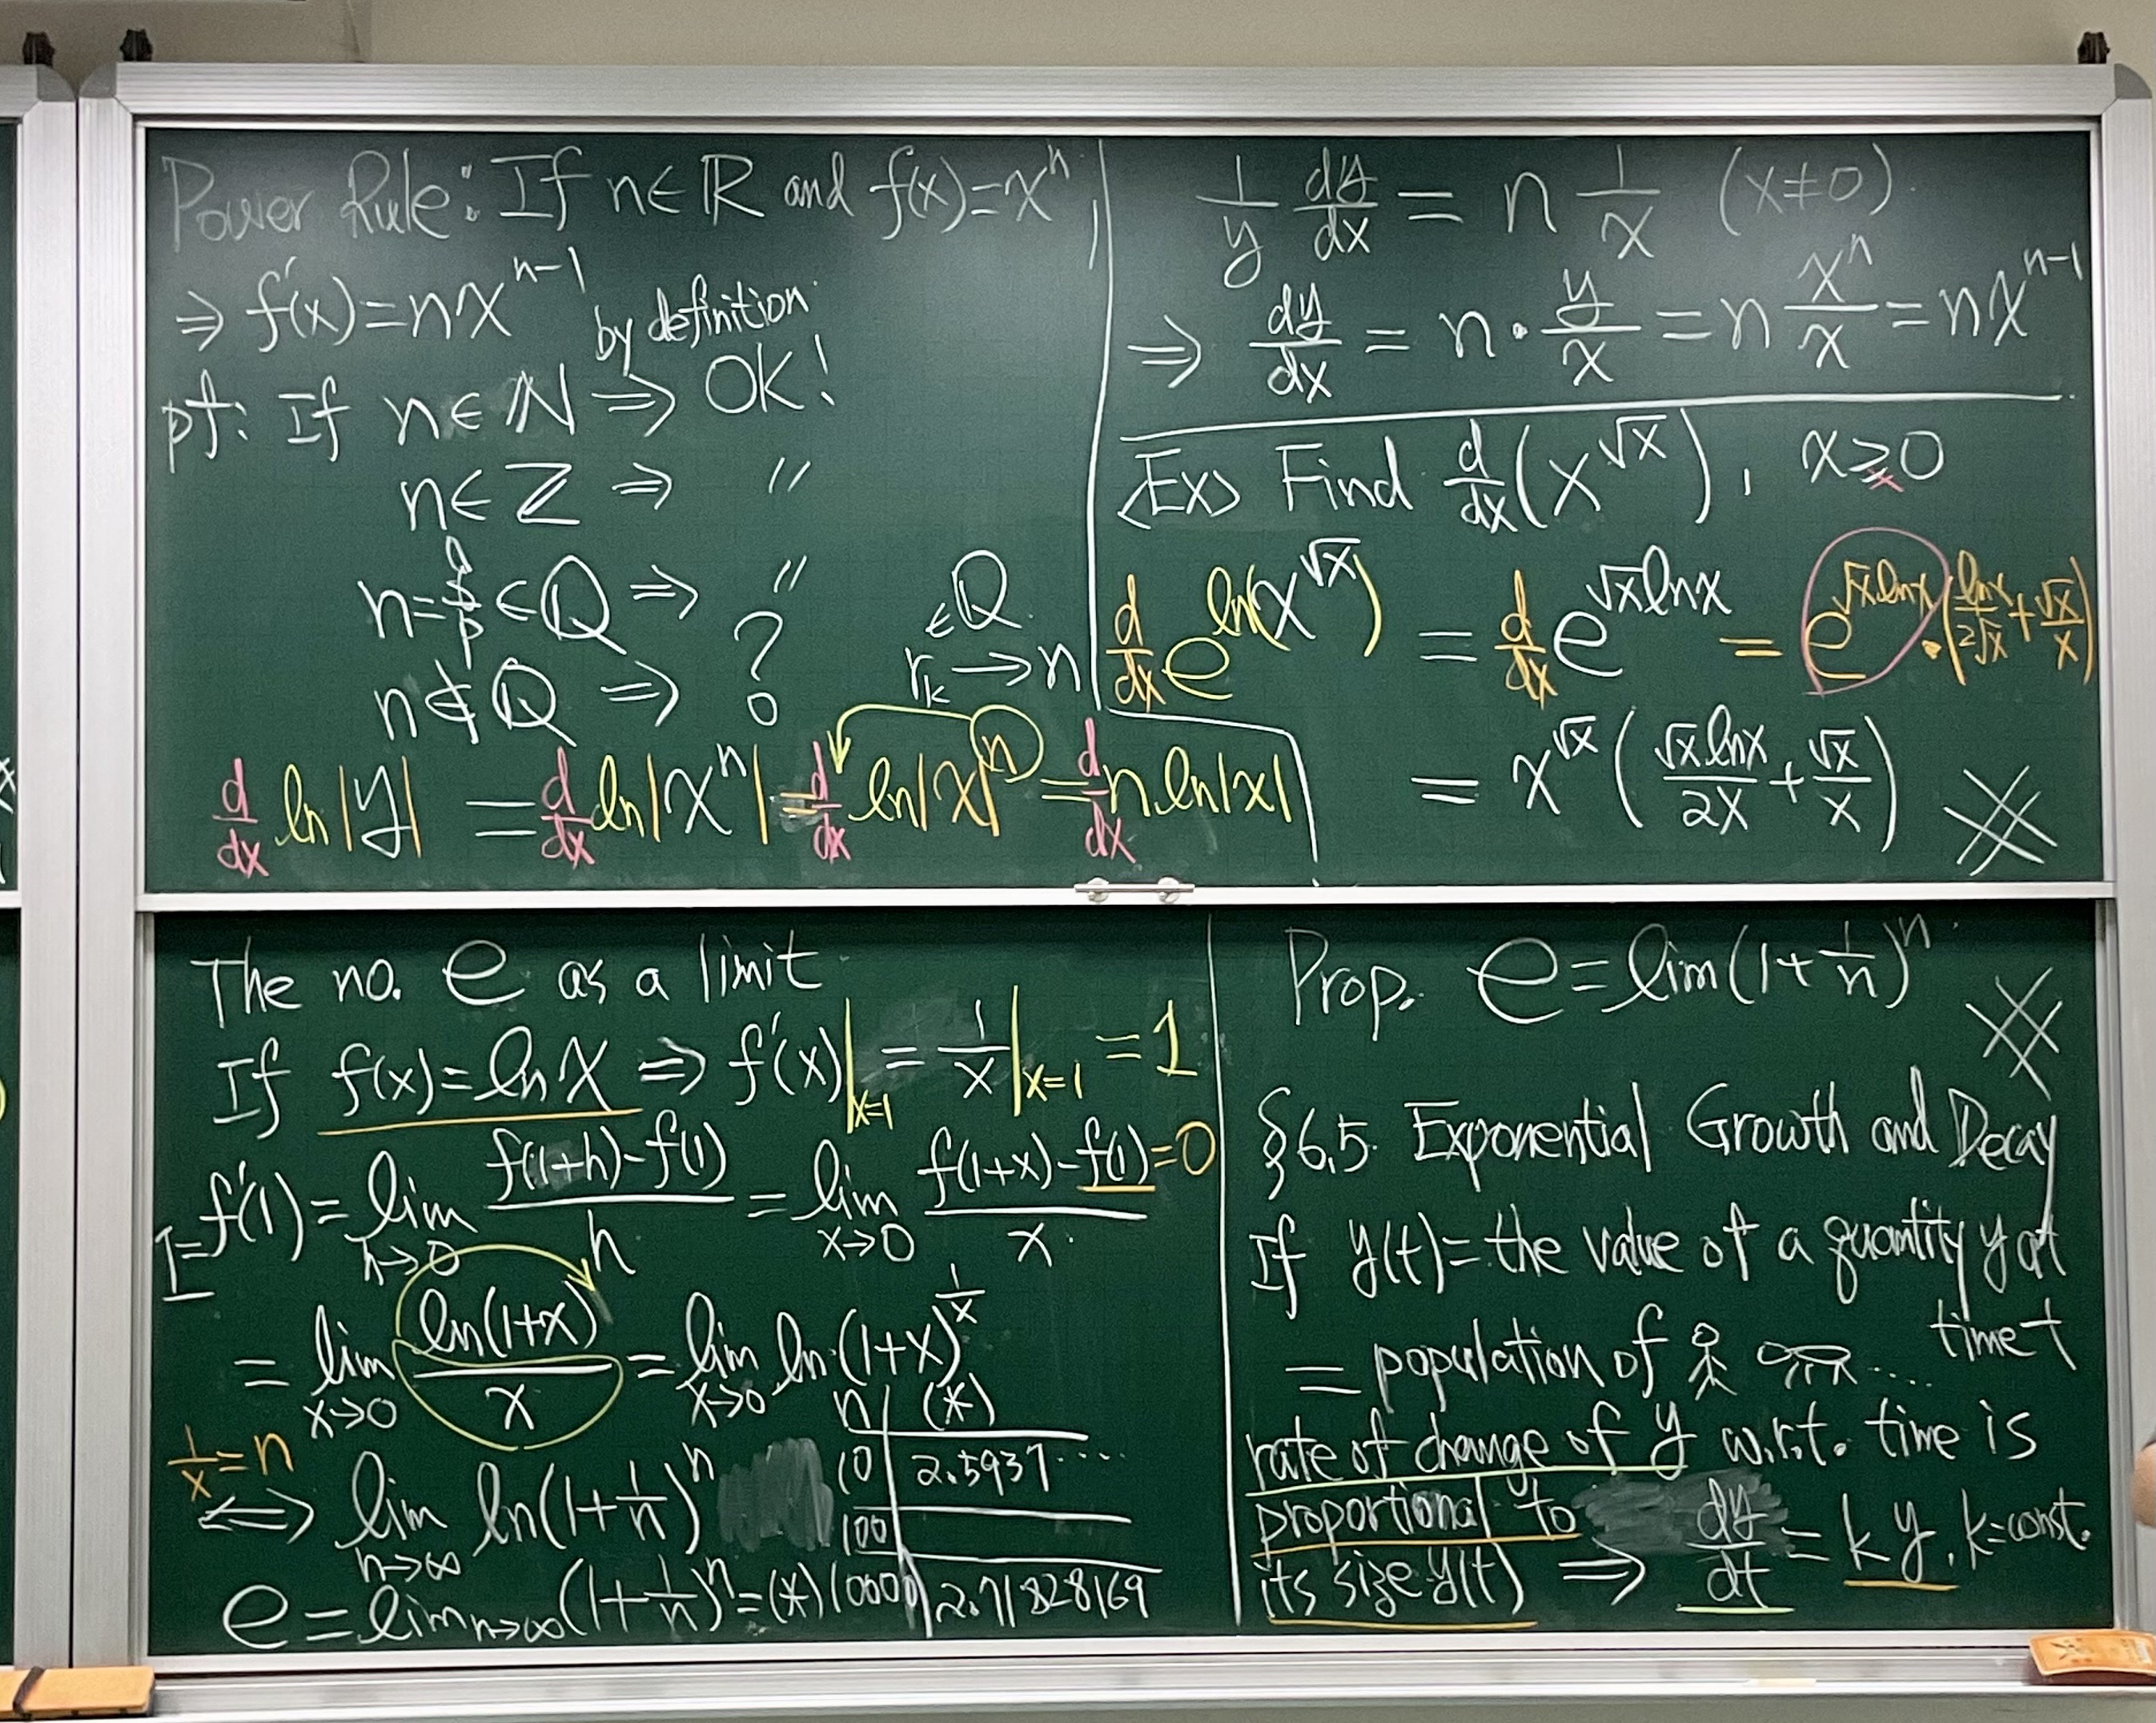 Power Rule: If n∈ℝ and f(x)=xⁿ
⇒ f'(x)=nx^{n-1}
by definition
pf: If n∈ℕ ⇒ OK!
n∈ℤ ⇒ "
n= /p ∈ℚ ⇒ "
n∉ℚ ⇒ ?
∈ℚ
r_k → n
d/dx ln|y| = d/dx ln|xⁿ| = d/dx ln|x|ⁿ = d/dx n ln|x|
1/y dy/dx = n 1/x (x≠0).
⇒ dy/dx = n·y/x = n xⁿ/x = nx^{n-1}
<Ex> Find d/dx(x^{√x}), x≥0
d/dx e^{ln(x^{√x})} = d/dx e^{√x lnx} = e^{√x lnx}·(lnx/2√x + √x/x)
= x^{√x}(√x lnx/2x + √x/x)
The no. e as a limit
If f(x)=ln x ⇒ f'(x)|_{x=1} = 1/x|_{x=1} = 1
1= f'(1) = lim_{h→0} (f(1+h)-f(1))/h = lim_{x→0} (f(1+x)-f(1))/x =0
= lim_{x→0} ln(1+x)/x = lim_{x→0} ln(1+x)^{1/x}
1/x=n
⇔ lim_{n→∞} ln(1+1/n)ⁿ
e = lim_{n→∞}(1+1/n)ⁿ = (*)
n (*)
10 2.5937....
100
10000 2.71828169
Prop. e = lim(1+1/n)ⁿ.
§6.5. Exponential Growth and Decay
If y(t)= the value of a quantity y at
time t
= population of ....
rate of change of y w.r.t. time is
proportional to
its size y(t) ⇒ dy/dt = ky, k=const.